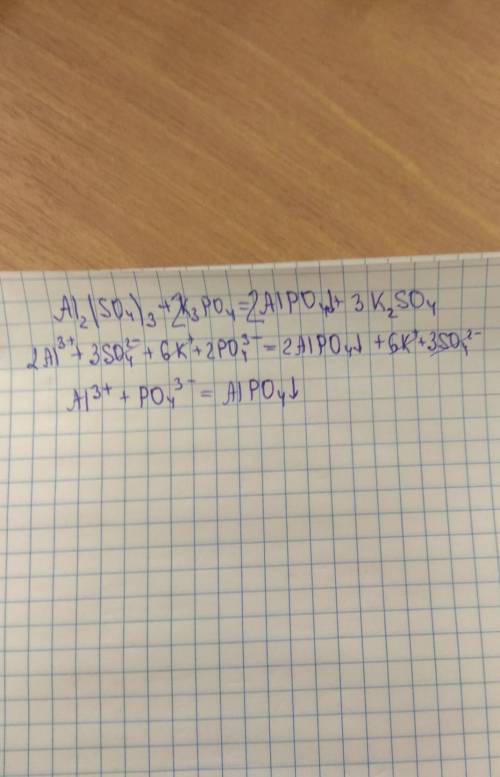 Al₂(SO₄)₃ + 2K₃PO₄ = 2AlPO₄↓ + 3K₂SO₄
2Al³⁺ + 3SO₄²⁻ + 6K⁺ + 2PO₄³⁻ = 2AlPO₄↓ + 6K⁺ + 3SO₄²⁻
Al³⁺ + PO₄³⁻ = AlPO₄↓